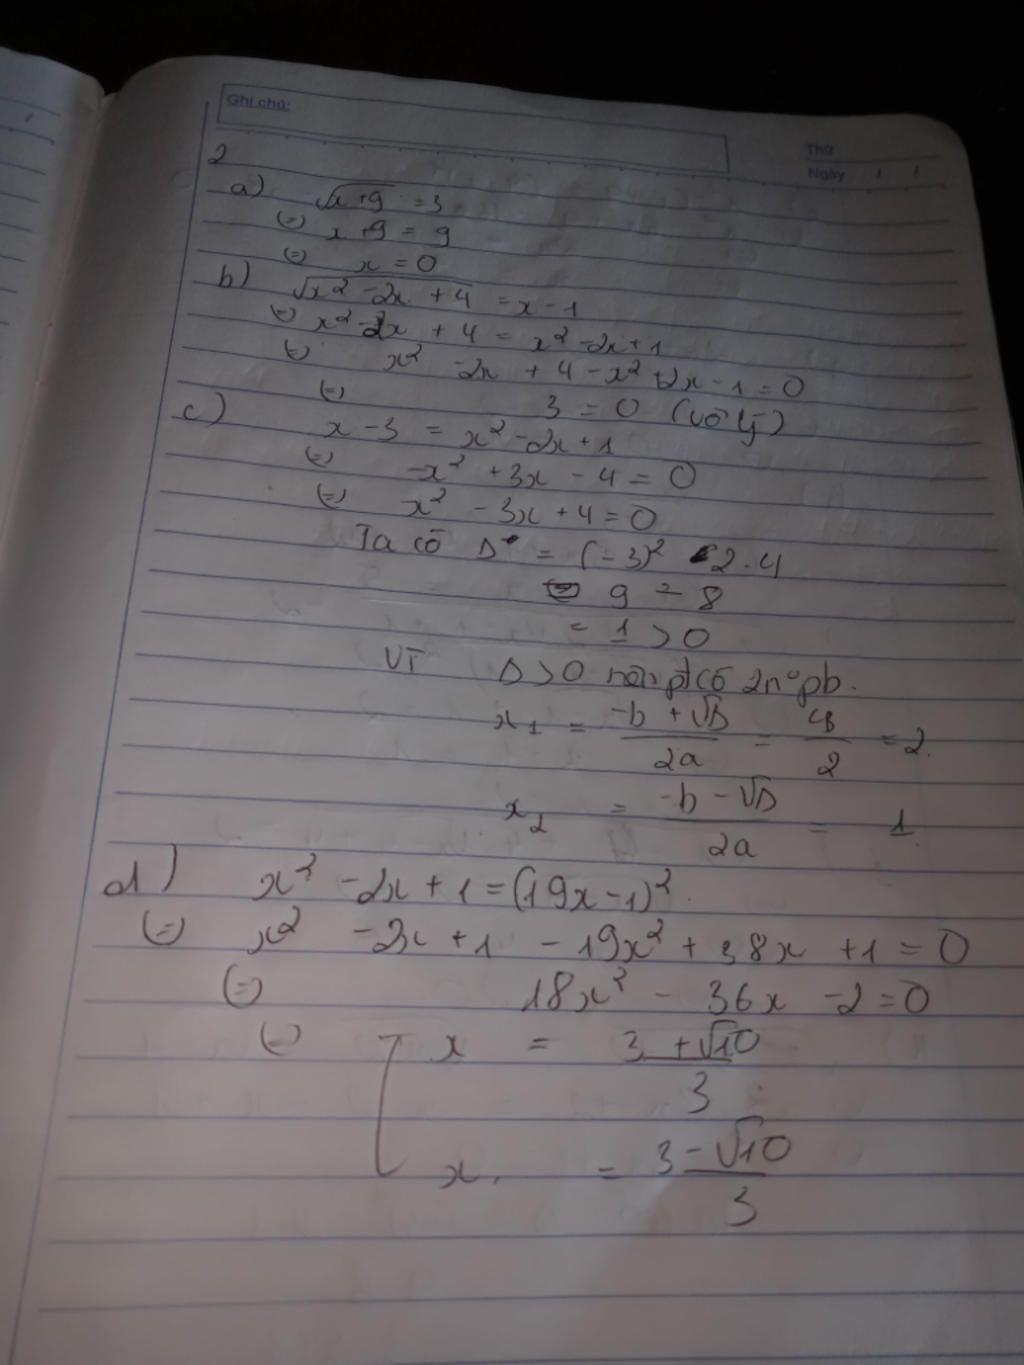 Ghi chú:
Thứ
Ngày / /
2
a) √x+9 = 3
(=) x+9 = 9
(=) x = 0
b) √x² -2x + 4 = x - 1
(=) x² -2x + 4 = x² -2x+1
(=) x² -2x + 4 - x² +2x - 1 = 0
(=) 3 = 0 (vô lý)
c) x - 3 = x² -2x+1
(=) -x² +3x - 4 = 0
(=) x² - 3x + 4 = 0
Ta có Δ = (-3)² - 2.4
9 - 8
= 1 > 0
Vì Δ > 0 nên pt có 2 n° pb.
x₁ = -b + √Δ / 2a = 4 / 2 = 2.
x₂ = -b - √Δ / 2a = 1
d) x² -2x + 1 = (19x-1)².
(=) x² -2x +1 - 19x² + 38x +1 = 0
(=) 18x² - 36x -2 = 0
(=) [ x = 3 + √10 / 3
x = 3 - √10 / 3